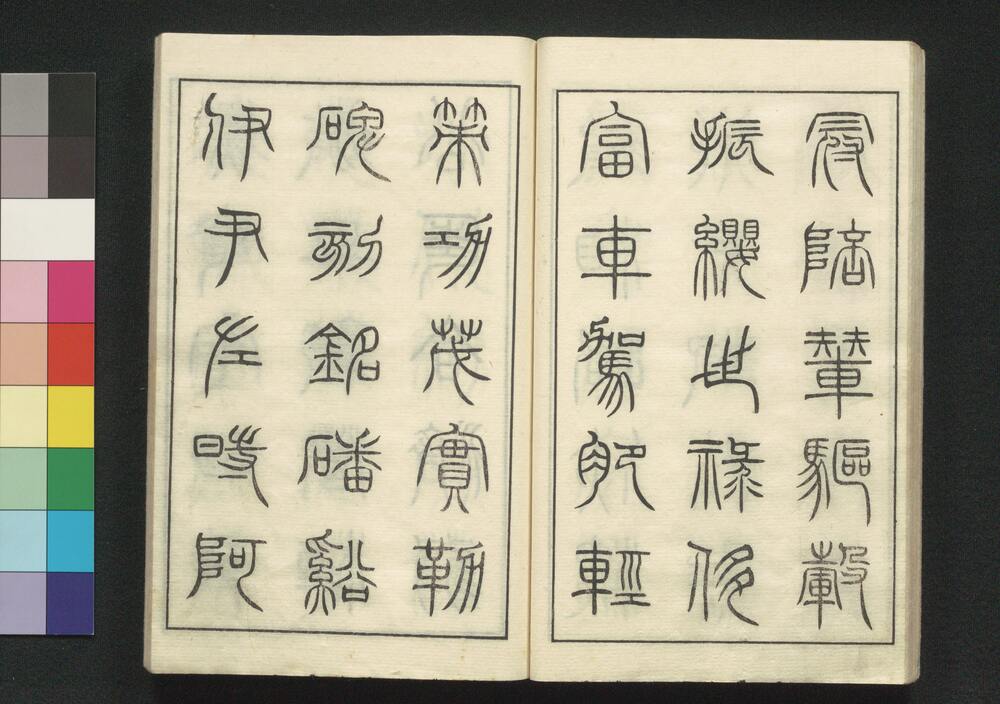 冠陪輦驅轂
振纓世祿侈
富車駕肥輕
策功茂實勒
碑刻銘磻谿
伊尹左時阿